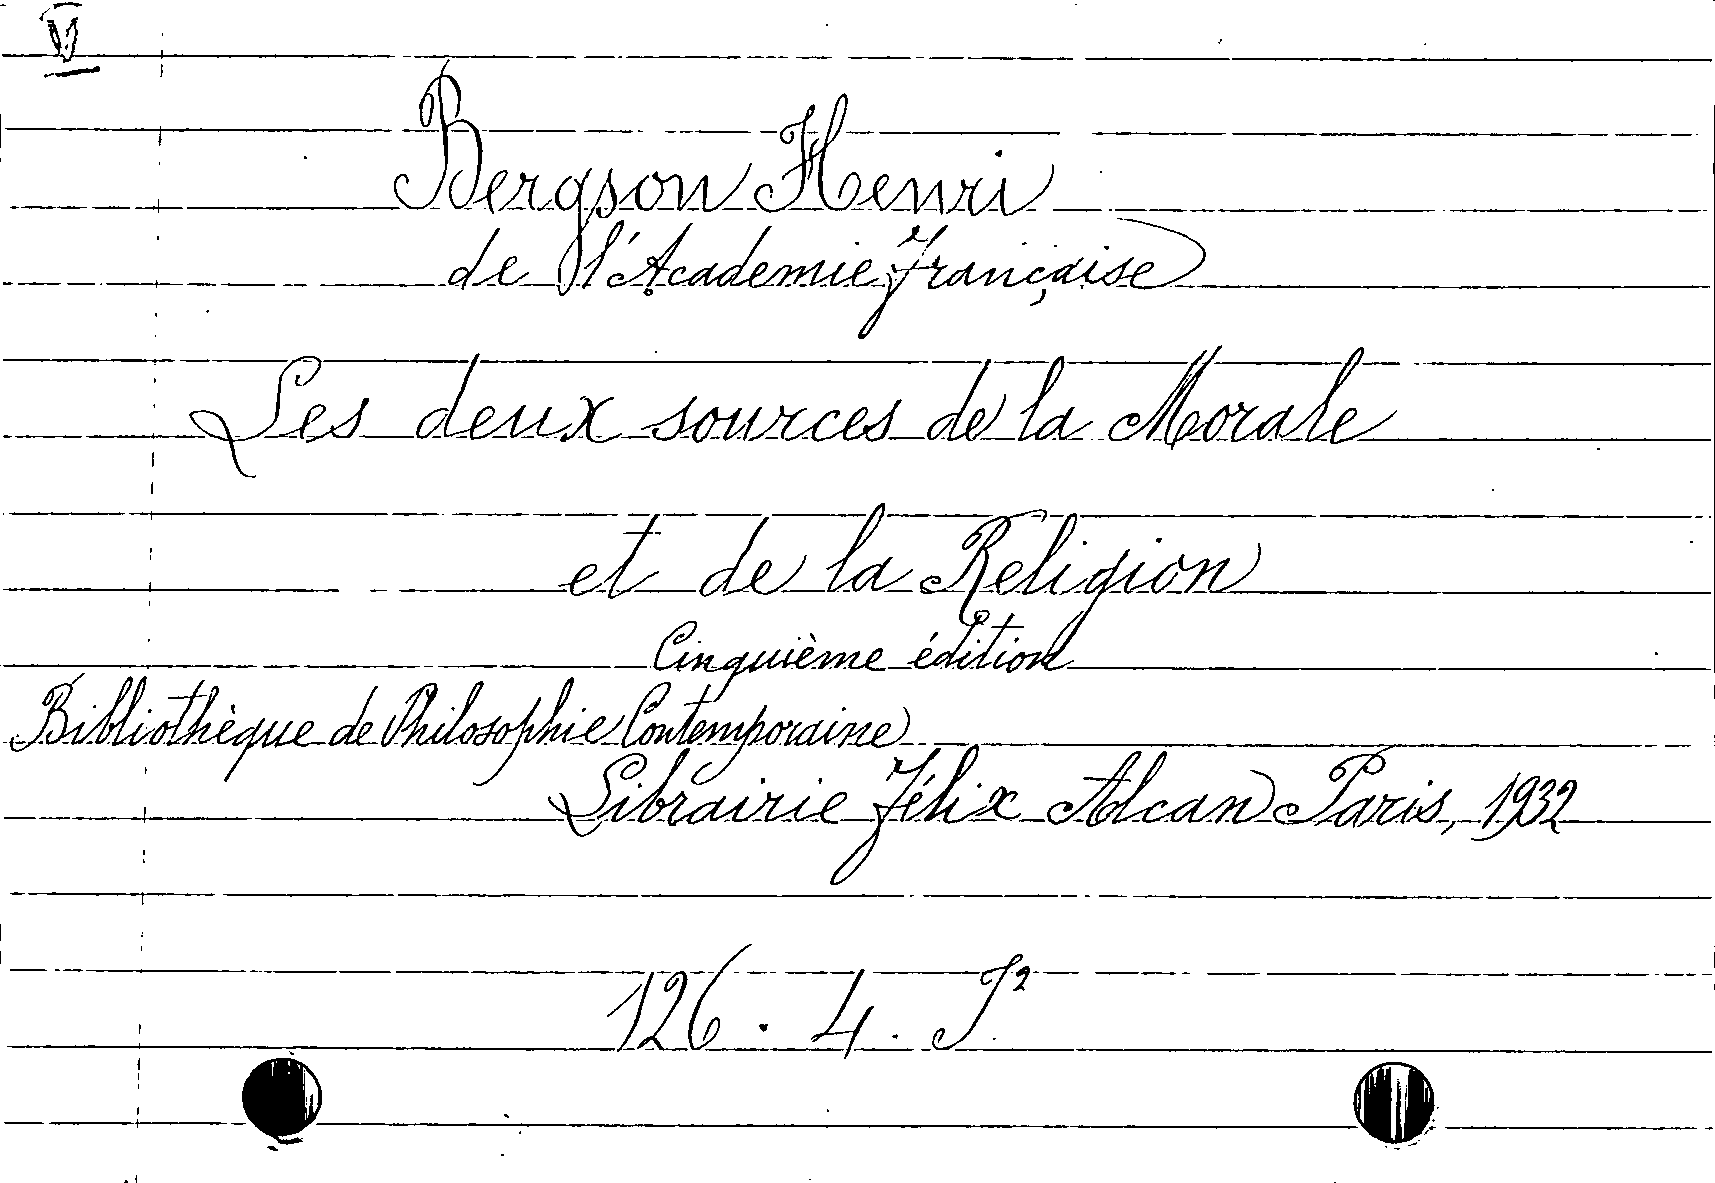 V
Bergson Henri
de l'Academie française
Les deux sources de la Morale
et de la Religion
Cinquième édition
Bibliothèque de Philosophie Contemporaine
Librairie Félix Alcan Paris, 1932
126 . 4 . J²